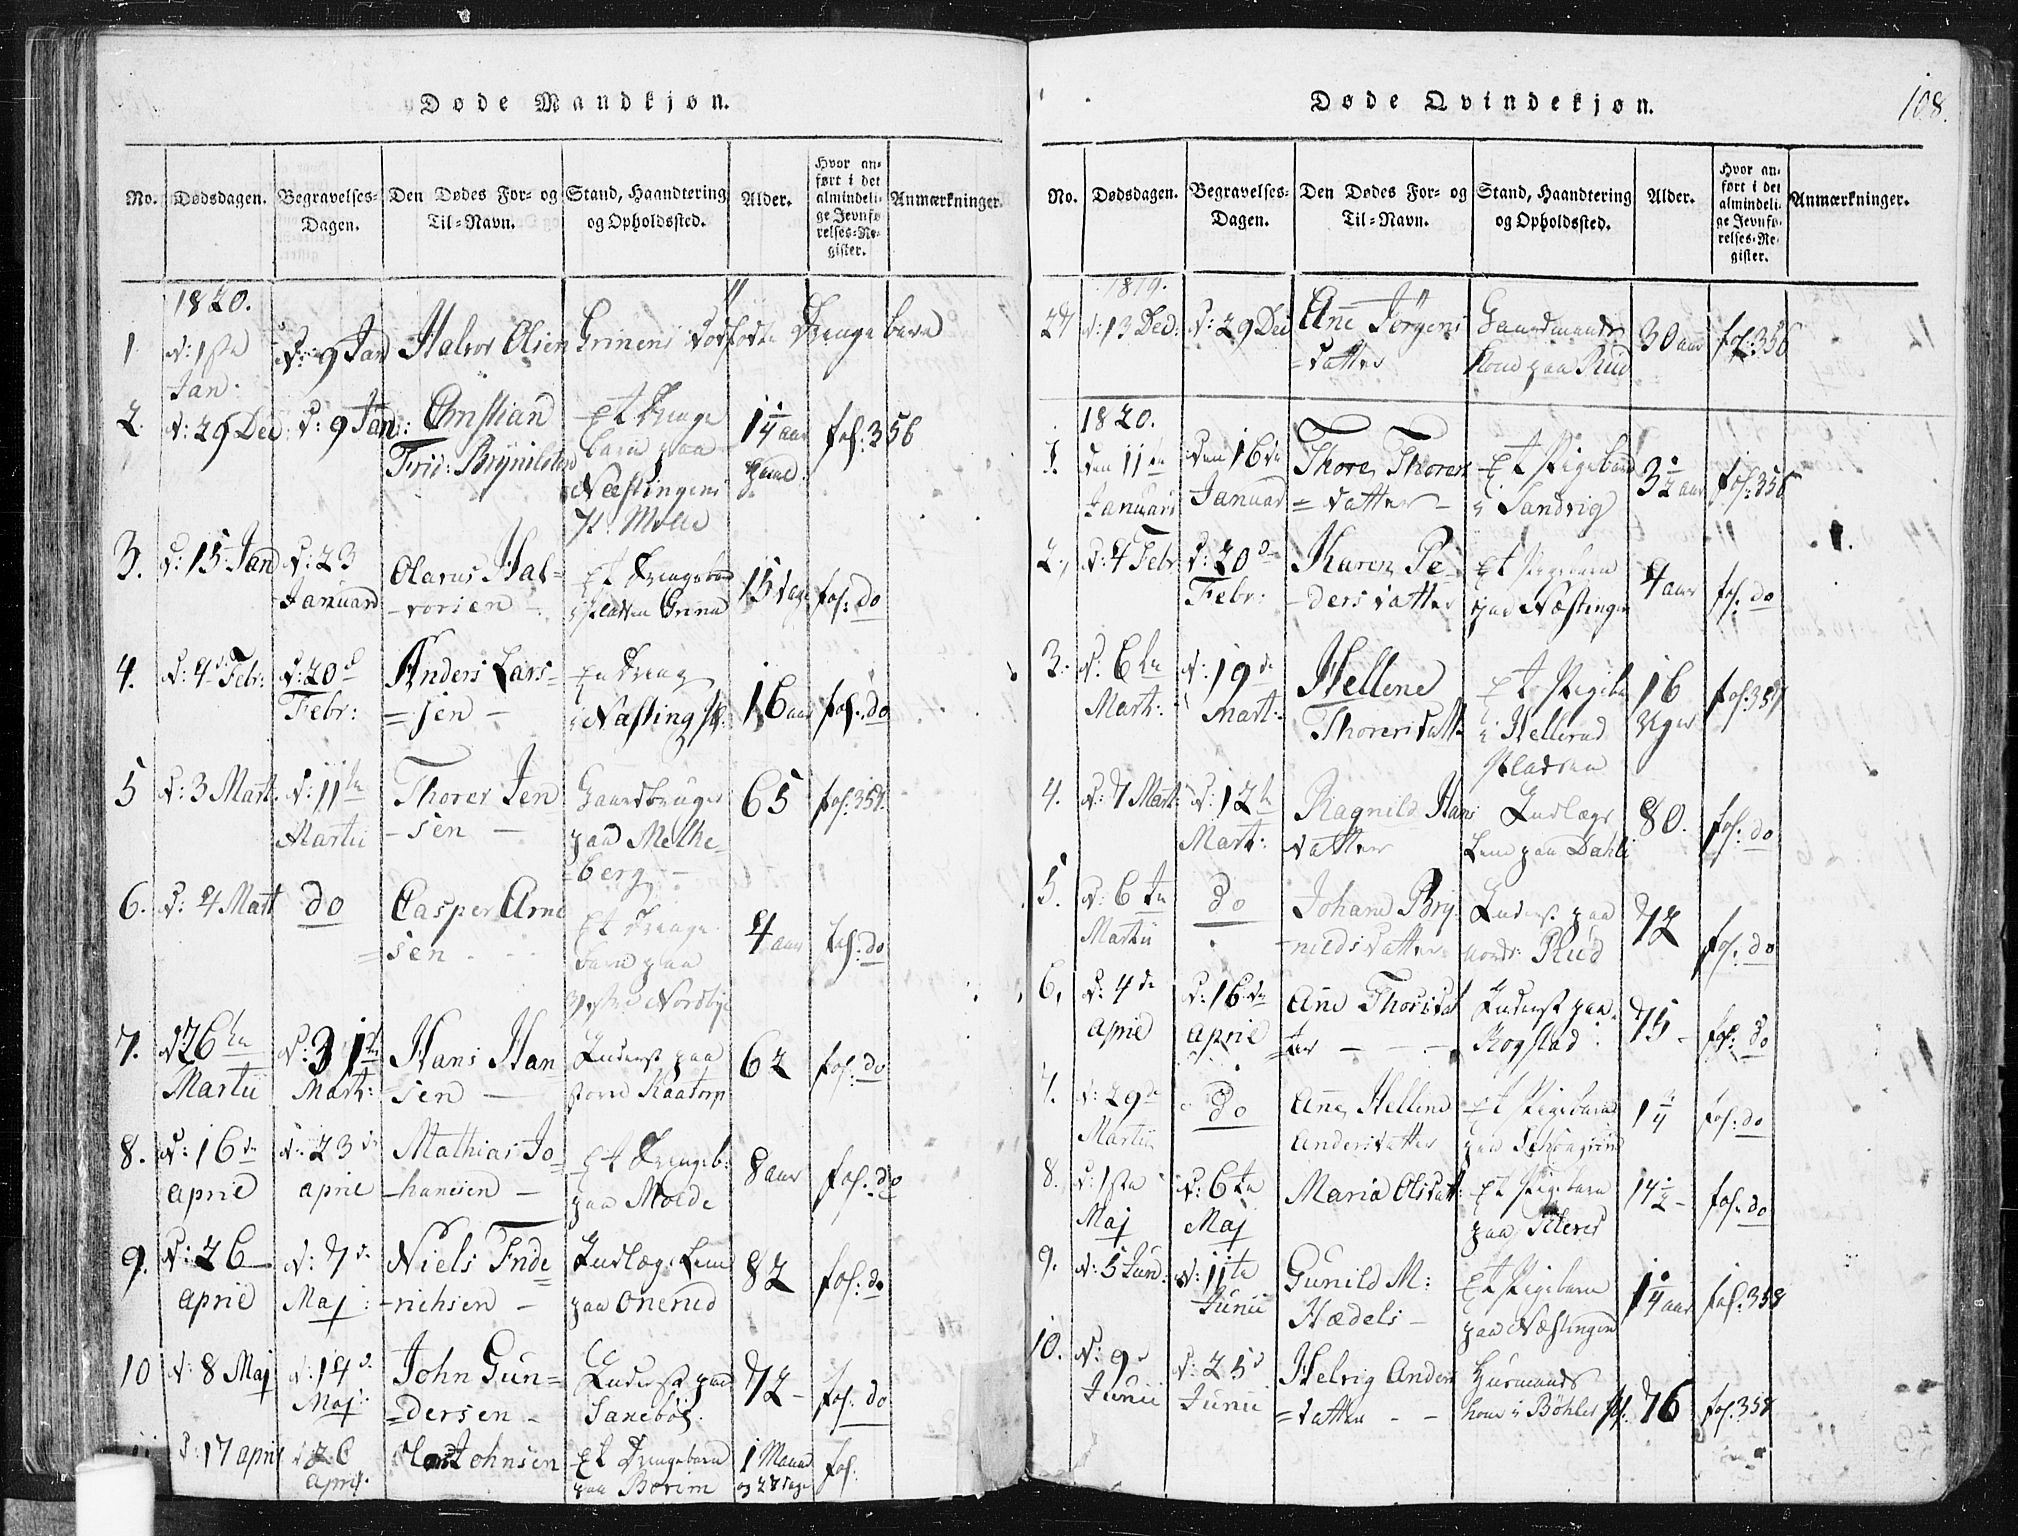 Døde Mandkjøn.
No. Dødsdagen. Begravelses-Dagen. Den Dødes For- og Til-Navn. Stand, Haandtering og Opholdssted. Alder. Hvor anført i det almindelige Jevnførelses-Register. Anmærkninger.
1820.
1. d: 1ste Jan: d: 9 Jan Halvor Olsen Grinens dødfødte Drengebarn
2. d. 29 Dec: d: 9 Jan: Christian Frid: Brynilsen Et Drenge barn paa Næstingens Pl: Molle 1 1/4 aar fol: 356
3. d: 15 Jan d: 23 Januarii Olavus Halvorsen Et Drengebarn Pladsen Grina 15 dage fol: do
4. d: 4de Febr: d: 20d Febr: Anders Larssen En Dreng i Næsting Pl: 16 aar fol: do
5 d: 3 Mart. d: 11te Martii Thorer Jensen Gaardbruger paa Melkeberg 65 fol: 357.
6. d: 4 Mart do Casper Arnesen Et Drenge barn paa Vestre Nordbye 4 aar fol: do
7. d: 26te Martii d: 31te Mart: Hans Hansen Inderst paa store Raatorp 62 fol: do
8. d: 16de April d: 23de April Mathias Johannesen Et Drengeb: paa Molde 8 aar fol: do
9. d: 26 April d: 7de Maj: Niels Friderichsen Indlægs Lem paa Onerud 82 fol: do
10 d: 8 Maj d: 14d. Maj: John Gundersen Inderst paa Sanebøl 72 fol. do
11 d: 17 April d 26 April. Johnsen Et Drengebarn paa Borim 1 Maaned og 28 dage fol.
Døde Qvindekjøn.
108.
No. Dødsdagen. Begravelses-Dagen. Den Dødes For- og Til-Navn. Stand, Haandtering og Opholdssted. Alder. Hvor anført i det almindelige Jevnførelses-Register. Anmærkninger.
1819.
27 d: 13 Dec: d: 29 Dec Ane Jörgensdatter Gaardmands Kone paa Rud 30 aar fol: 356
1820.
1. den 11te Januarii den 16de Januar Thore Thoresdatter Et Pigebarn i Sandvig 3 1/2 aar fol: 356
2. d: 4 Febr d: 20de Febr: Karen Pedersdatter Et Pigebarn paa Næstingen 4 aar fol: do
3. d. 6te Mart: d: 19de Mart: Hellene Thorersdatt Et Pigeba i Hellerud Pladsen 16 Uger fol: 357
4. d: 7 Mart: d: 12te Mart: Ragnild Hansdatter Indlægs Lem paa Dahl 80. fol: do
5. d: 6te Martii do Johane Brynildsdatter Inderst paa nordr: Rud 72 fol. do
6. d: 4de April d: 16de April Ane Thorsdatter Inderst paa Rogstad 75 fol: do
7. d: 29de Martii do Ane Helline Andersdatter Et Pigebarn paa 1 1/4 fol: do
8. d: 1ste Maj d: 6te Maj Maria Olsdatt: Et Pigebarn paa 14 1/2 fol. do
9. d: 5 Jun: d: 11te Junii Gunild M: Hædels Et Pigebarn paa Næstingen 1 1/4 aar fol. 358
10. d: 9d Junii d: 25d Junii Helvig Andersdatter Husmands kone i Böhler Pl. 76 fol. 358